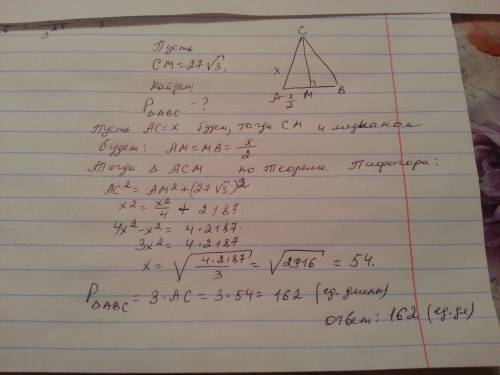 Пусть
CM = 27√3.
Найдем
P△ABC - ?
C
x
A x/2 M B
Пусть AC = x будет, тогда CM и медианой
будет: AM = MB = x/2.
Тогда △ ACM по теореме Пифагора:
AC² = AM² + (27√3)²
x² = x²/4 + 2187.
4x² - x² = 4·2187.
3x² = 4·2187
x = √(4·2187/3) = √2916 = 54.
P△ABC = 3·AC = 3·54 = 162 (ед. длины)
ответ: 162 (ед. дл)